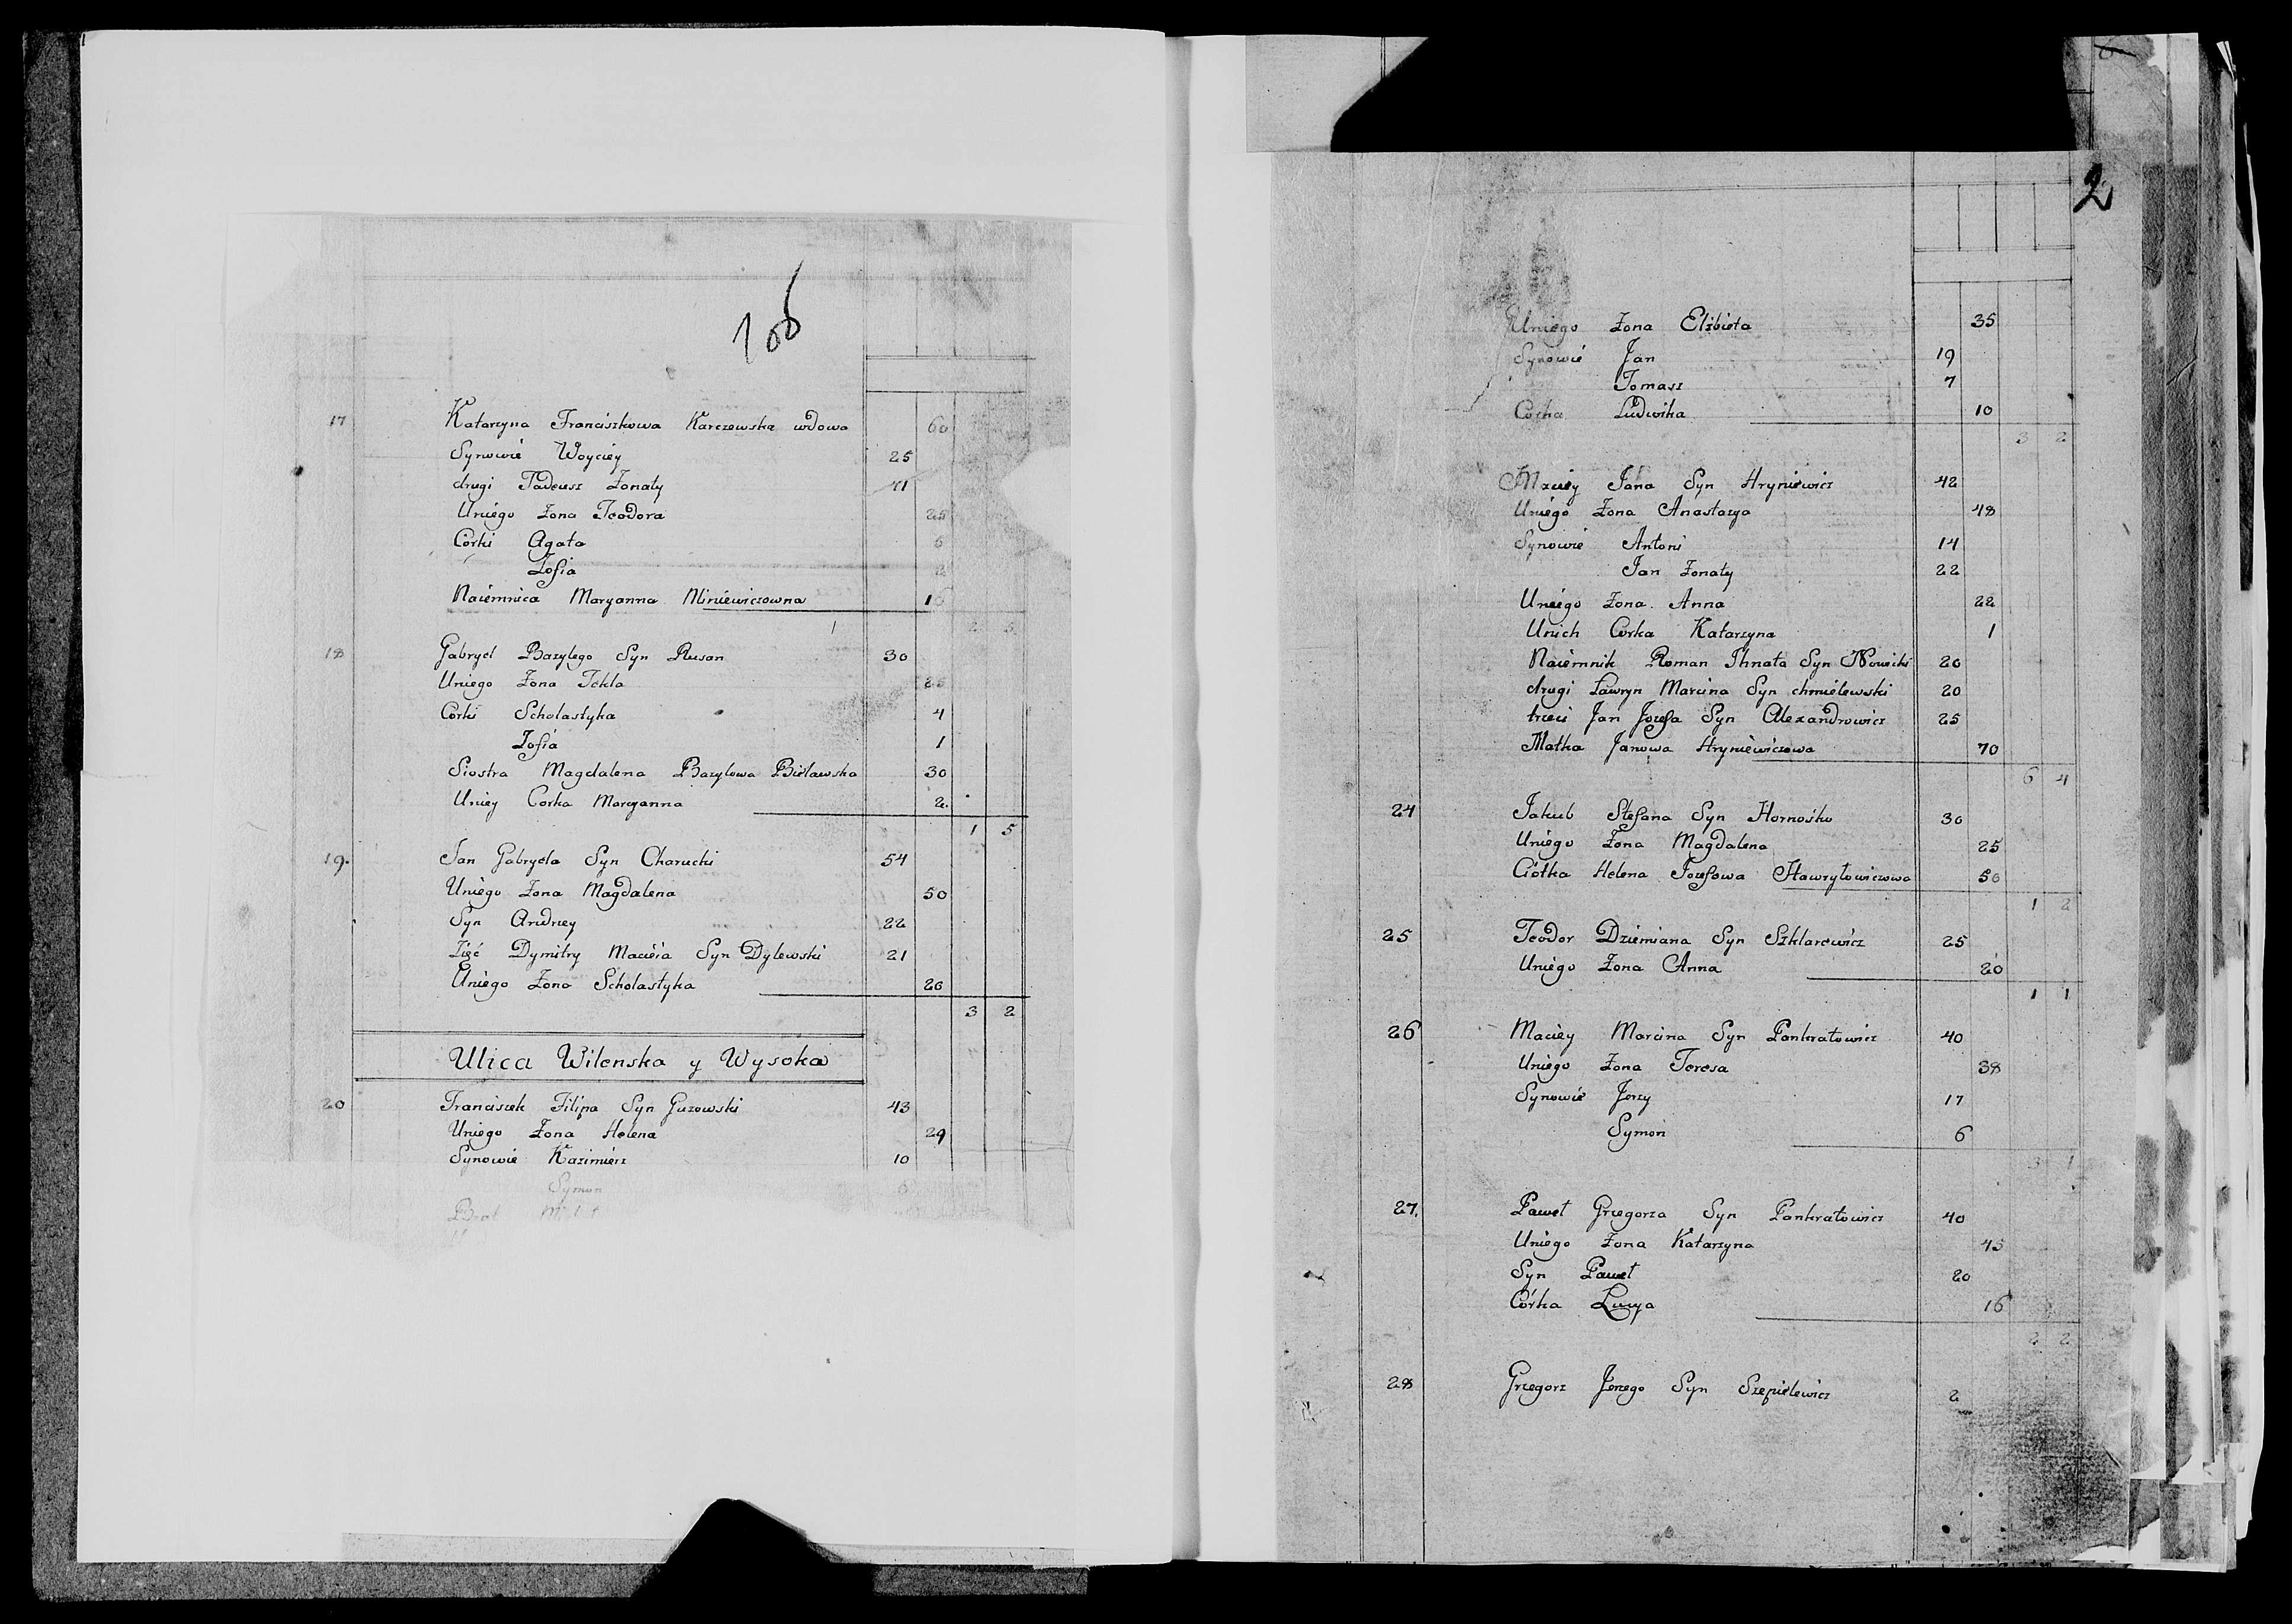 17 Katarzyna Franciszkowa Karczewska wdowa 60
Synowié Woyciey 25
drugi Tadeusz Żonaty 41
Uniego Żona Teodora 25
Corki Agata 6
Zofia 2
Naiémnica Maryanna Miniewiczowna 16
2 5
18 Gabryel Bazylego Syn Rusan 30
Uniego Żona Tekla 25
Corki Scholastyka 4
Zofia 1
Siostra Magdalena Bazylowa Bielawska 30
Uniey Corka Maryanna 2
1 5
19. Jan Gabryela Syn Charucki 54
Uniego Żona Magdalena 50
Syn Andrzey 22
Zięć Dymitry Macieia Syn Dylewski 21
Uniego Żona Scholastyka 20
3 2
Ulica Wilenska y Wysoka
20 Franciszek Filipa Syn Guzowski 43
Uniego Żona Helena 29
Synowie Kazimierz 10
Symon 6
Brat
2
Uniego Żona Elżbieta 35
Synowié Jan 19
Tomasz 7
Corka Ludwika 10
3 2
Maciey Jana Syn Hryniewicz 42
Uniégo Żona Anastazya 48
Synowié Antoni 14
Jan Żonaty 22
Uniégo Żona Anna 22
Unich Corka Katarzyna 1
Naiémnik Roman Ihnata Syn Nowicki 20
drugi Ławryn Marcina Syn chmiélewski 20
trzeci Jan Jozefa Syn Alexandrowicz 25
Matka Janowa Hryniéwiczowa 70
6 4
24 Jakub Stefana Syn Hornosko 30
Uniégo Żona Magdalena 25
Ciótka Helena Jozefowa Hawryłowiczowa 50
1 2
25 Teodor Dziemiana Syn Szklarewicz 25
Uniégo Żona Anna 20
1 1
26 Maciey Marcina Syn Pankratowicz 40
Uniégo Żona Teresa 38
Synowié Jerzy 17
Symon 6
3 1
27. Paweł Grzegorza Syn Pankratowicz 40
Uniégo Żona Katarzyna 45
Syn Paweł 20
Córka Łucya 16
2 2
28 Grzegorz Jerzego Syn Szepielewicz 2